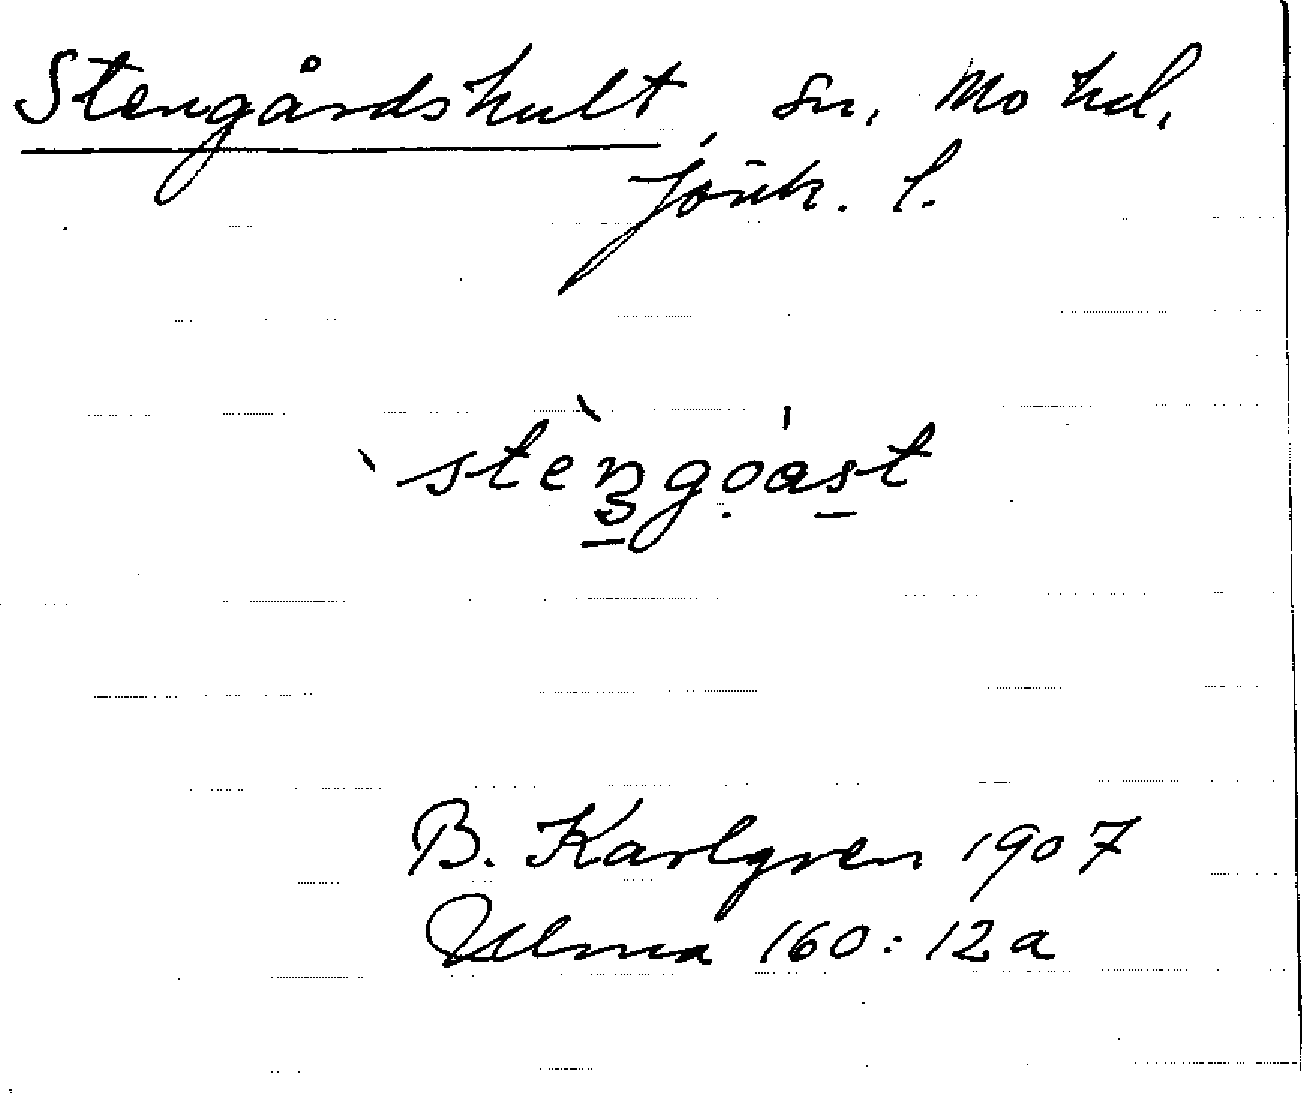 Stengårdshult, sn, Mo hd,
Jönk. l.
`stèŋgo̩ást
B. Karlgren 1907
Ulma 160:12a